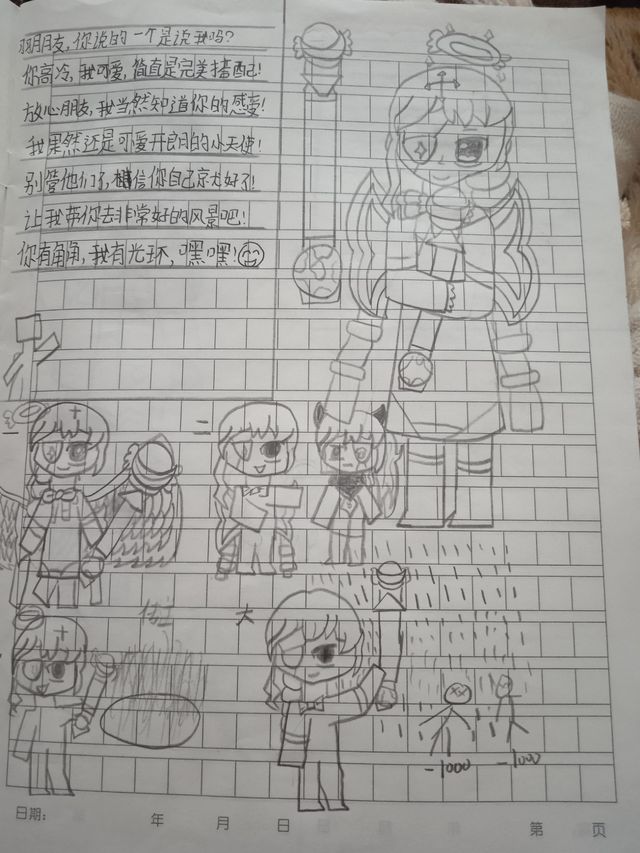 羽月月友，你说的一个是说我吗？
你高冷，我可爱，简直是完美搭配！
放心朋友，我当然知道你的感受！
我果然还是可爱开朗的小天使！
别管他们了，相信你自己京尤好了！
让我带你去非常好的风景吧！
你有角角，我有光环，嘿嘿！
一
二
大
-1000
-1000
日期： 年 月 日 第 页